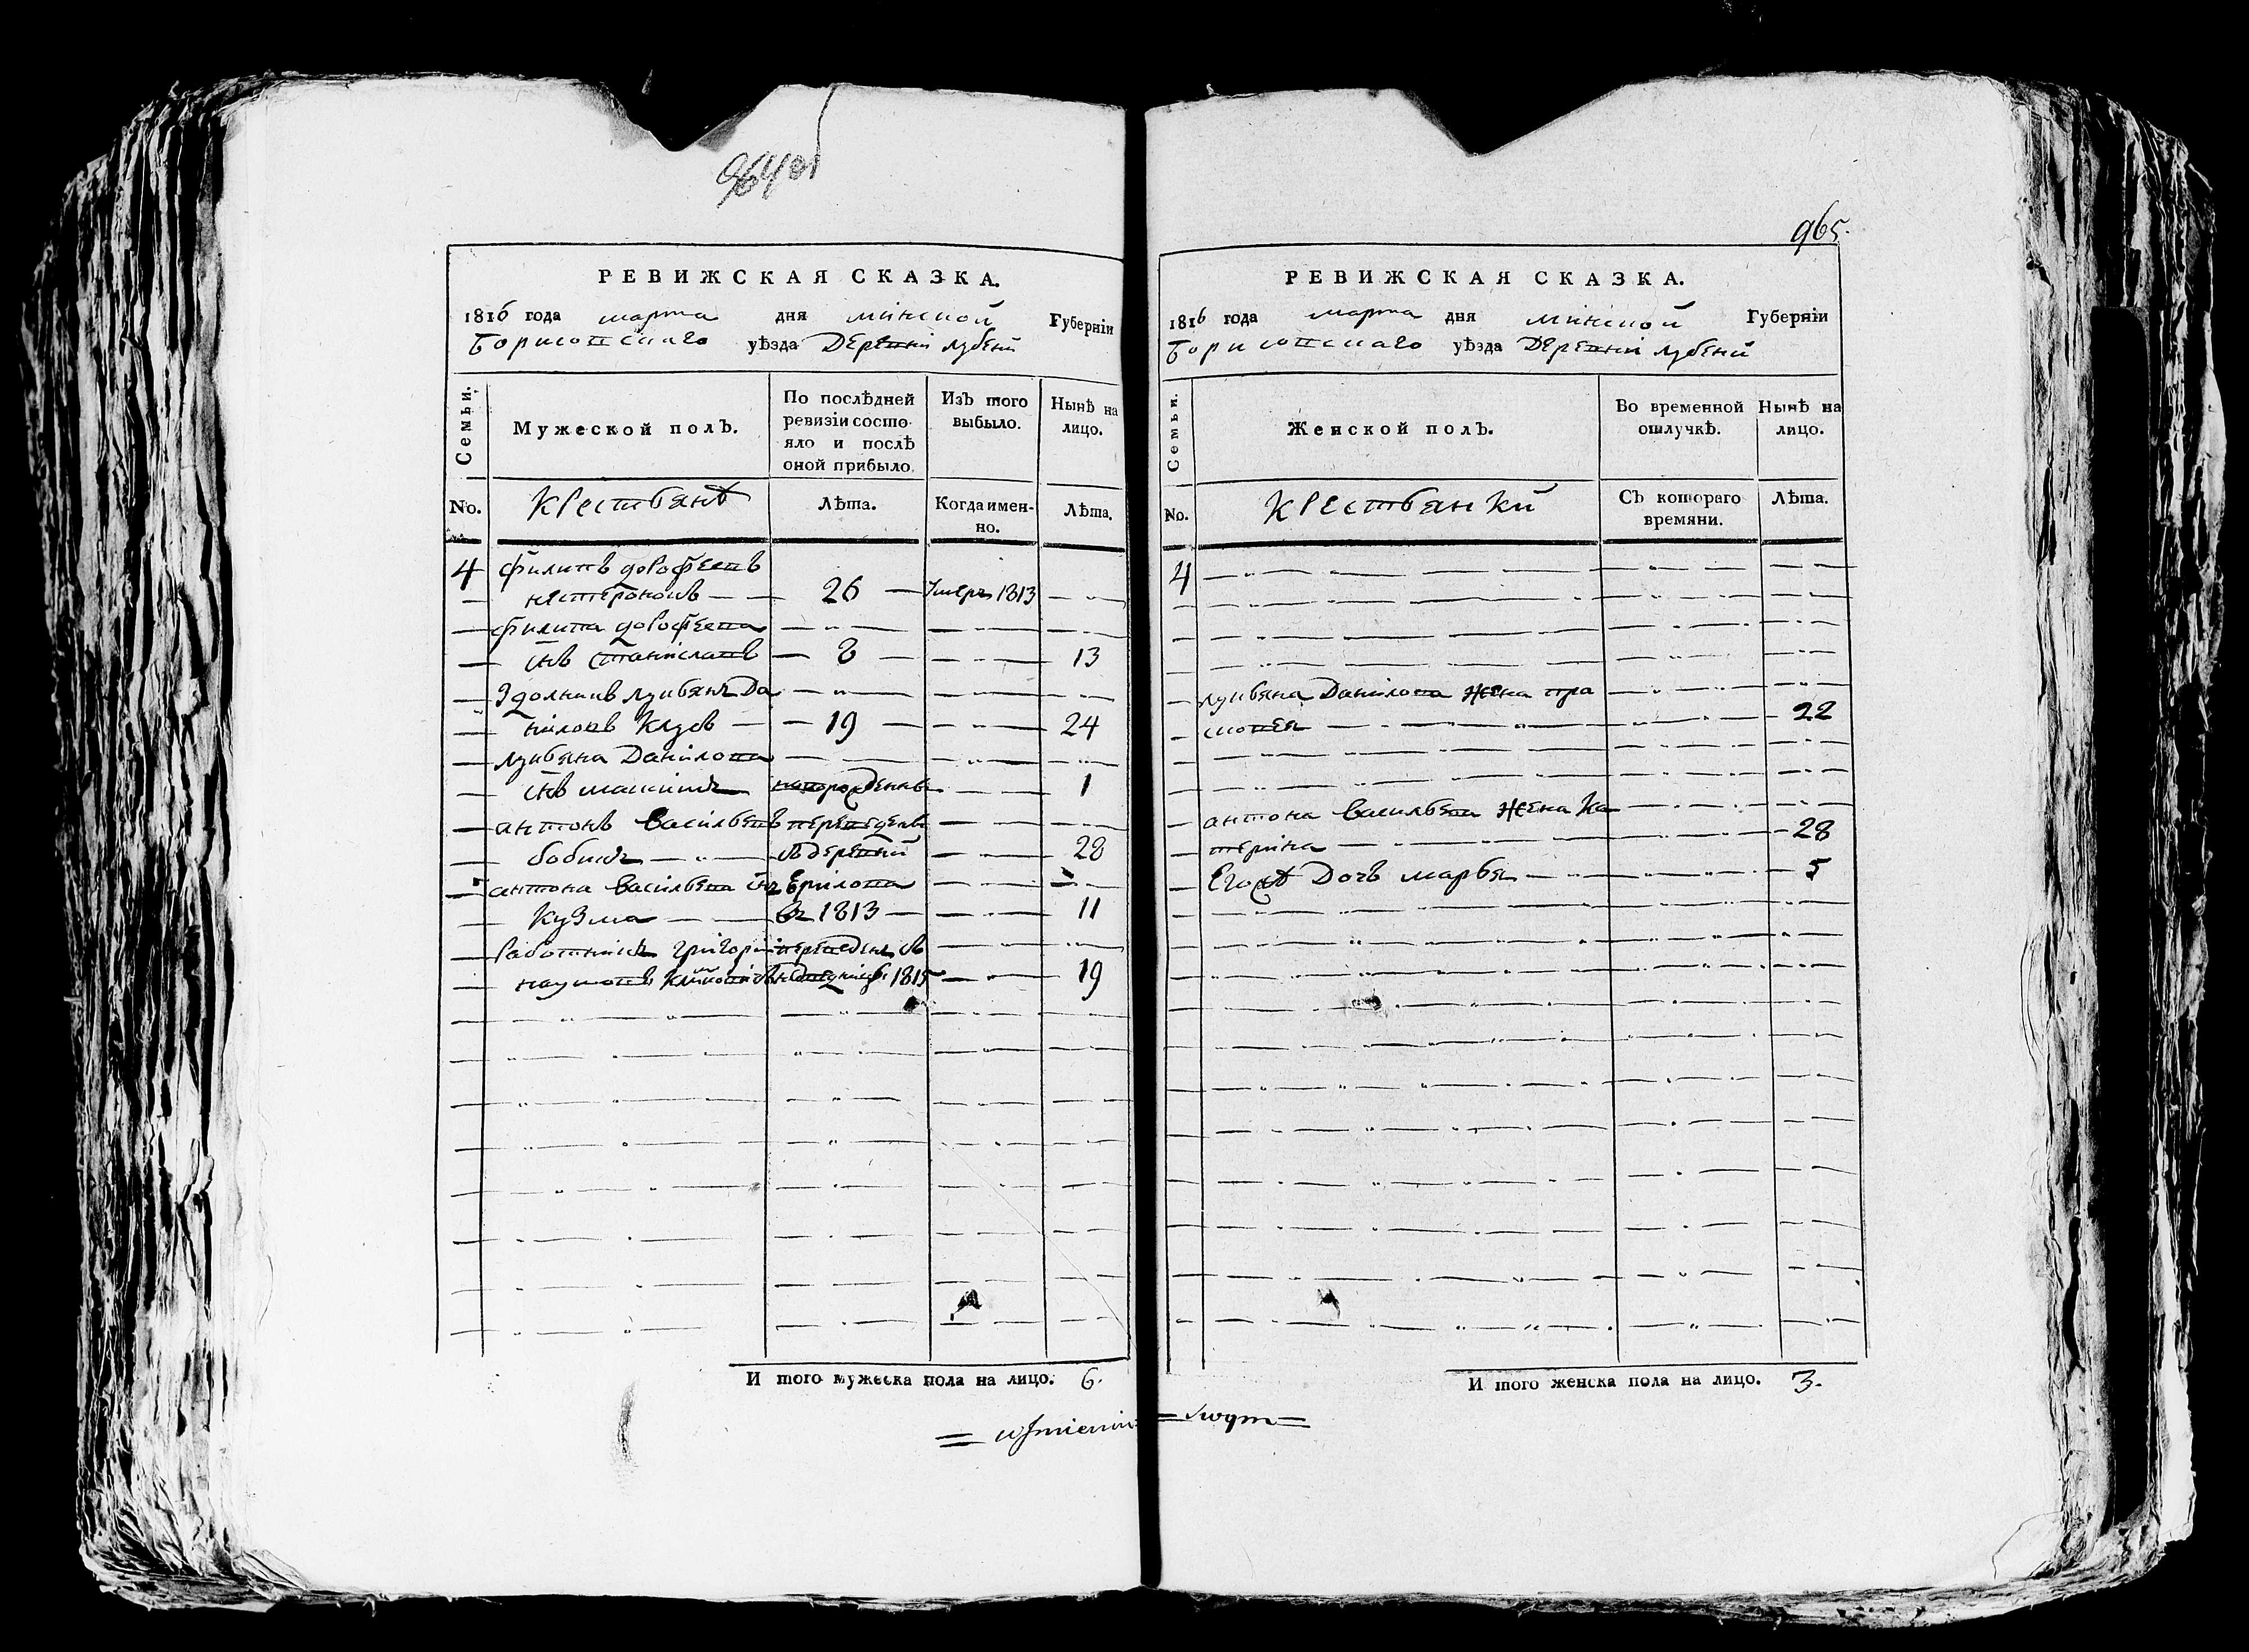 964 об
РЕВИЖСКАЯ СКАЗКА.
1816 года марта дня минской Губерніи
Борисовскаго уѣзда Деревни лубени
Семьи.
Мужеской полъ.
По послѣдней ревизіи состояло и послѣ оной прибыло.
Изъ того выбыло.
Нынѣ на лицо.
No.
Крестьянѣ
Лѣта.
Когда именно.
Лѣта.
4 филипъ дорофеевъ
26 Умеръ 1813
филипа дорофеева
снъ станиславъ 8 13
лукьянъ Да
ниловъ 19 24
лукьяна Данилова
снъ максимъ новорожденъ 1
антонъ васильевъ переведенъ
бобикъ деревни 28
антона васильева снъ
Кузма въ 1813 11
работникъ григори переведенъ
наумовъ 1815 19
И того мужеска пола на лицо. 6.
965.
РЕВИЖСКАЯ СКАЗКА.
1816 года марта дня минской Губерніи
Борисовскаго уѣзда Деревни лубени
Семьи.
Женской полъ.
Во временной отлучкѣ.
Нынѣ на лицо.
No.
Крестьянки
Съ котораго времяни.
Лѣта.
4
лукьяна Данилова жена пра
сковея 22
антона васильева жена Ка
терина 28
Егожъ Дочь марья 5
И того женска пола на лицо. 3.